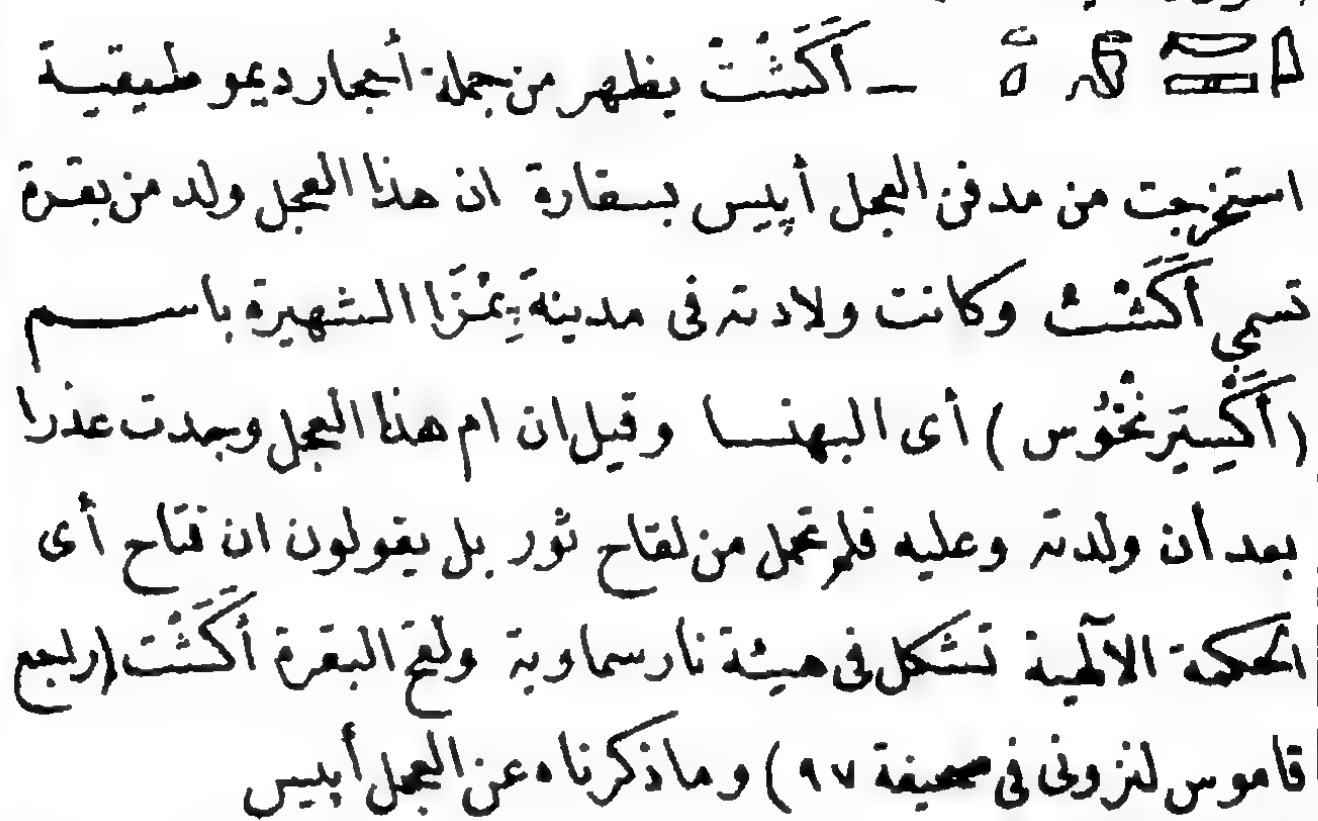 ــ أَكَشَتْ يظهر من جملة أحجار ديموطيقية
استخرجت من مدفن العجل أپيس بسقارة ان هذا العجل ولد من بقرة
تسمى أَكَشَتْ وكانت ولادته فى مدينة پِمْزَا الشهيرة باســـم
(أُكْسِيَرِنْخُوس) أى البهنســا وقيل ان ام هذا العجل وجدت عذرا
بعد أن ولدته وعليه فلم تحمل من لقاح ثور بل يقولون ان فتاح أى
الحكمة الالٓهية تشكل فى هيئة نار سماوية ولقح البقرة أَكَشَت (راجع
قاموس لنزونى فى صحيفة ٩٧) وما ذكرناه عن العجل أپيس